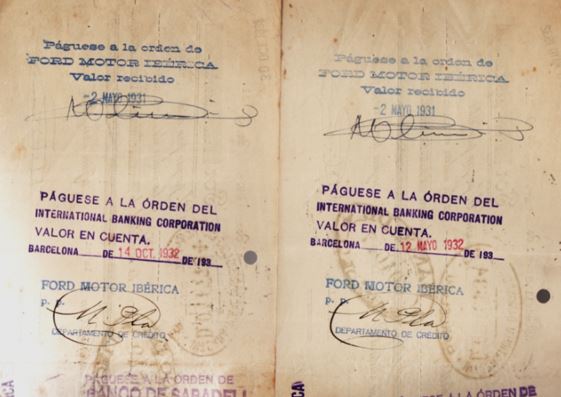 Páguese a la orden de
FORD MOTOR IBÉRICA
Valor recibido
-2 MAYO 1931
PÁGUESE A LA ÓRDEN DEL
INTERNATIONAL BANKING CORPORATION
VALOR EN CUENTA.
BARCELONA DE 14 OCT. 1932 DE 193
FORD MOTOR IBÉRICA
p. p.
DEPARTAMENTO DE CRÉDITO
PÁGUESE A LA ORDEN DE
BANCO DE SABADELL
Páguese a la orden de
FORD MOTOR IBÉRICA
Valor recibido
-2 MAYO 1931
PÁGUESE A LA ÓRDEN DEL
INTERNATIONAL BANKING CORPORATION
VALOR EN CUENTA.
BARCELONA DE 12 MAYO 1932 DE 193
FORD MOTOR IBÉRICA
p. p.
DEPARTAMENTO DE CRÉDITO
PÁGUESE A LA ÓRDEN DE